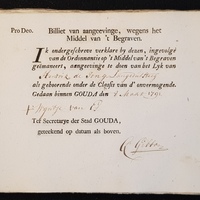 Pro Deo. Billiet van aangeevinge, wegens het
Middel van 't Begraven.
IK ondergeschreve verklare by dezen, ingevolge
van de Ordonnantie op 't Middel van 't Begraven
geëmaneert, aangeevinge te doen van het Lyk van
als gehoorende onder de Classis van d' onvermogende.
Gedaan binnen GOUDA den 1791
Ter Secretarye der Stad GOUDA,
geteekend op datum als boven.